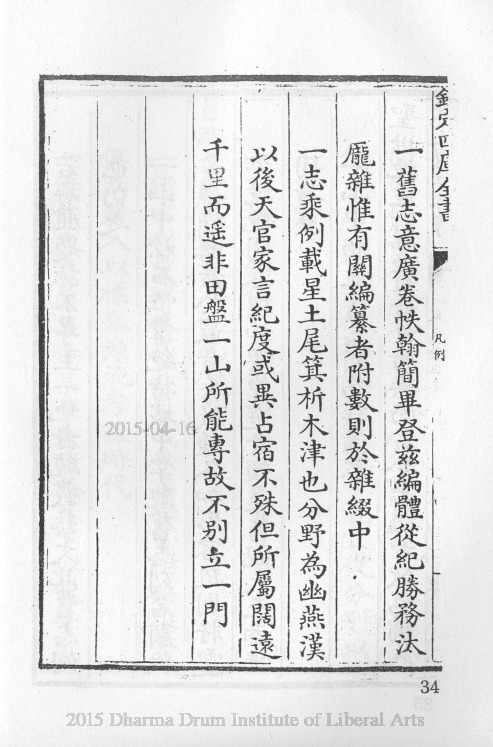 欽定四庫全書
凡例
一舊志意廣卷帙翰簡畢登兹編體從紀勝務汰
龐雜惟有關編纂者附數則於雜綴中
一志乘例載星土尾箕析木津也分野為幽燕漢
以後天官家言紀度或異占宿不殊但所屬闊遠
千里而遥非田盤一山所能專故不别立一門
2015-04-16
34
2015 Dharma Drum Institute of Liberal Arts